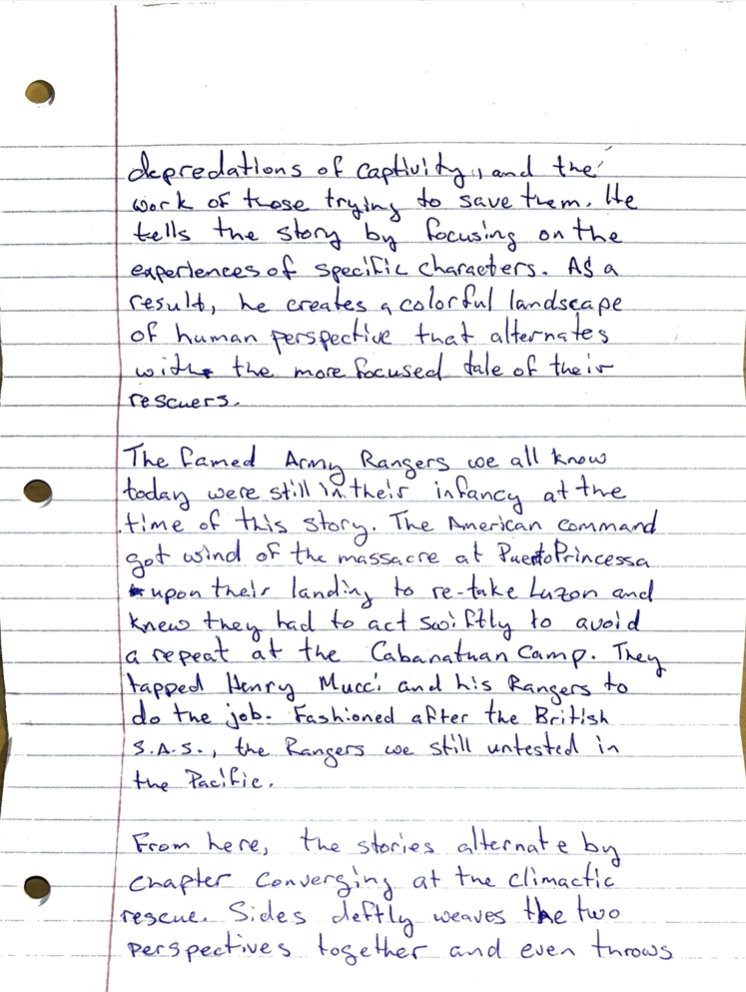 depredations of captivity, and the
work of those trying to save them. He
tells the story by focusing on the
experiences of specific characters. As a
result, he creates a colorful landscape
of human perspective that alternates
with the more focused tale of their
rescuers.
The famed Army Rangers we all know
today were still in their infancy at the
time of this story. The American command
got wind of the massacre at Puerto Princessa
upon their landing to re-take Luzon and
knew they had to act swiftly to avoid
a repeat at the Cabanatuan Camp. They
tapped Henry Mucci and his Rangers to
do the job. Fashioned after the British
S.A.S., the Rangers we still untested in
the Pacific.
From here, the stories alternate by
chapter converging at the climactic
rescue. Sides deftly weaves the two
perspectives together and even throws